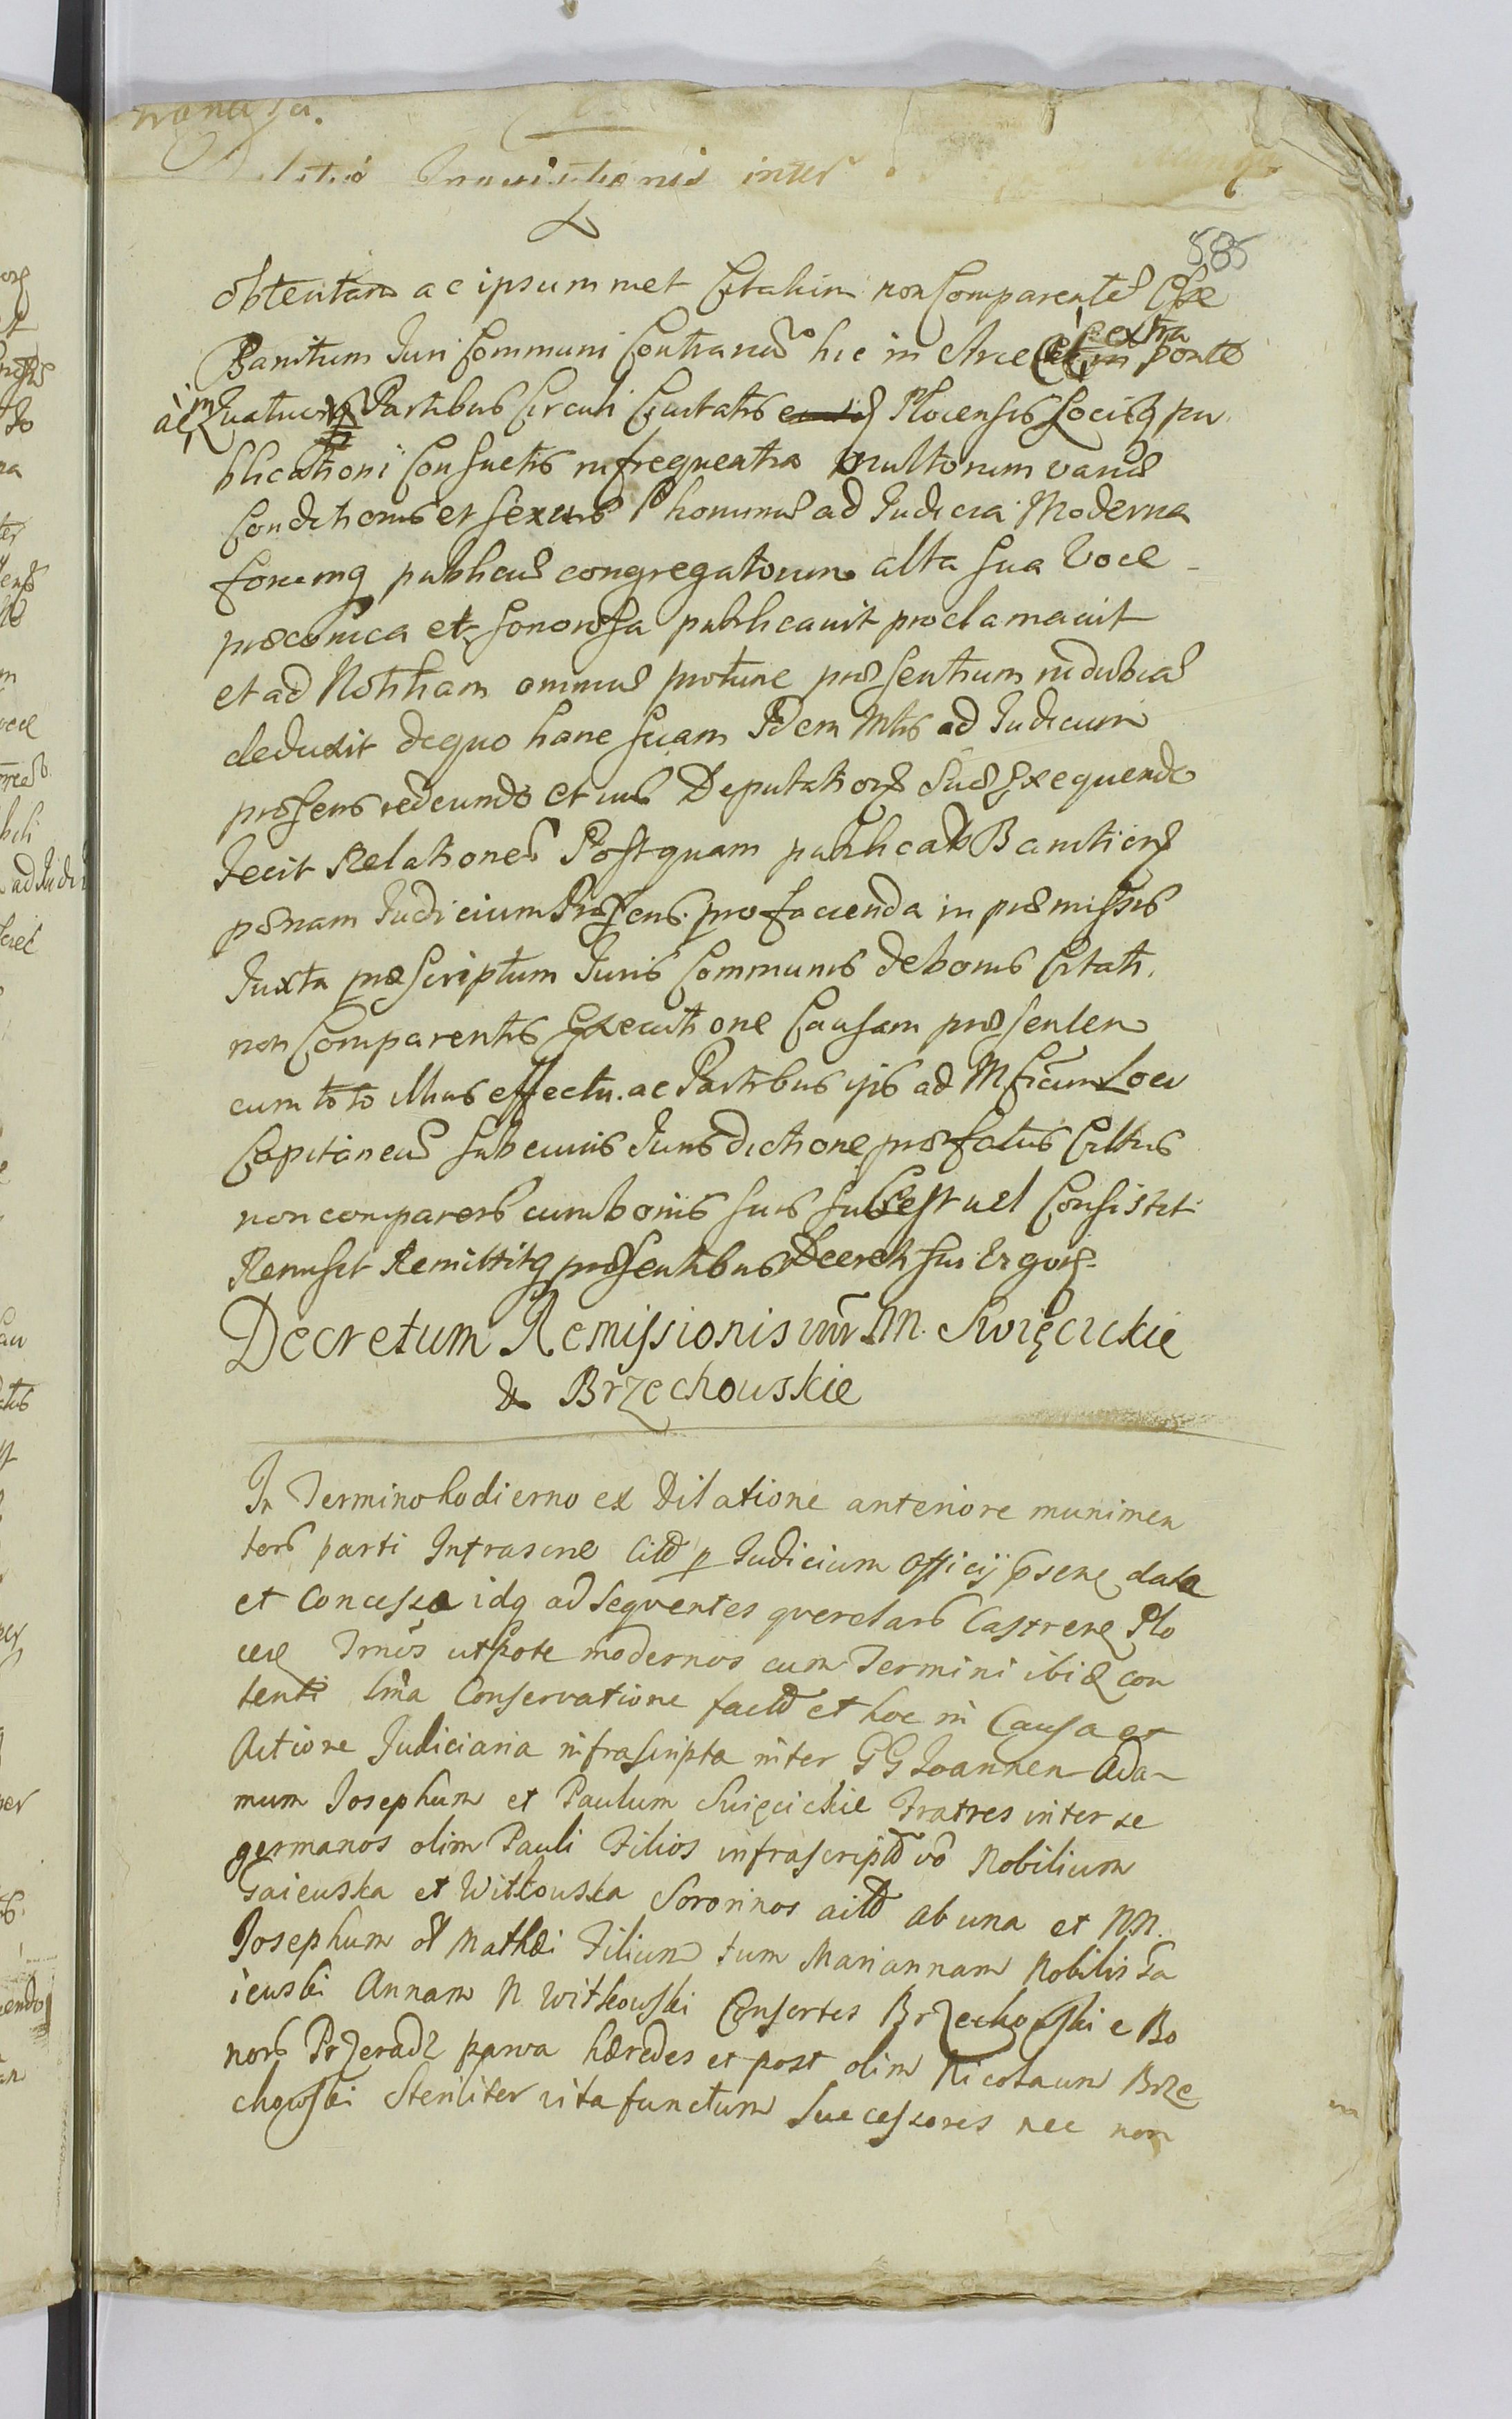 inter
585
obtentam ac ipsummet Citatum non Comparentem Esse
Banitum Juri Communi Contrarium hic in Arce et in extra ponte
ac in Quatuor Partibus Circuli Civitatis Plocensis Locisq pu
blicationi Consuetis in frequentia multorum varias
Conditionis et sexus hominum ad Judicia Moderna
forumq publicus congregatorum alta sua Voce
præconica et sonorosa publicavit proclamavit
et ad Notitiam omnium protunc præsentium indubias
deduxit de quo hanc suam Idem Mtis ad Judicium
præsens redeundo et in Deputationis suæ Exequendo
fecit Relationem Postquam publicatæ Banitionis
pænam Judicium Præsens pro facienda in præmissis
Juxta præscriptum Juris Communis de bonis Citati
non Comparentis Executione Causam præsentem
cum toto illius effectu ac Partibus ipis ad Mficum Loci
Capitaneum sub cuius Jurisdictione præfatus Cittus
non comparens cum bonis suis subest vel Consistit
Remisit Remittitq præsentibus Decreti sui Vigore
Decretum Remissionis intr M. Swięcickie
& Brzechowskie
In Termino hodierno ex Dilatione anteriore munimen
torū parti Infrascrie p Judicium Officij data
et Concessa idq ad sequentes querelarū Castrene Plo
cen Trnos utpote modernos cum Termini ibiq con
tenti Conservatione et hoc in Causa et
Actione Judiciaria infrascripta inter GG Joannem Ada-
mum Josephum et Paulum Swięcickie Fratres inter se
germanos olim Pauli Filios infrascript vō Nobilium
Gaiewska et Witkowska Sororinos ab una et NN.
Josephum ol Mathæi Filium tum Mariannam Nobilis Ga
iewski Annam N Witkowski Consortes Brzechowskie Bo
norū Przeradz parva hæredes et post olim Nicolaum Brze
chowski Steriliter vita functum Successores nec non